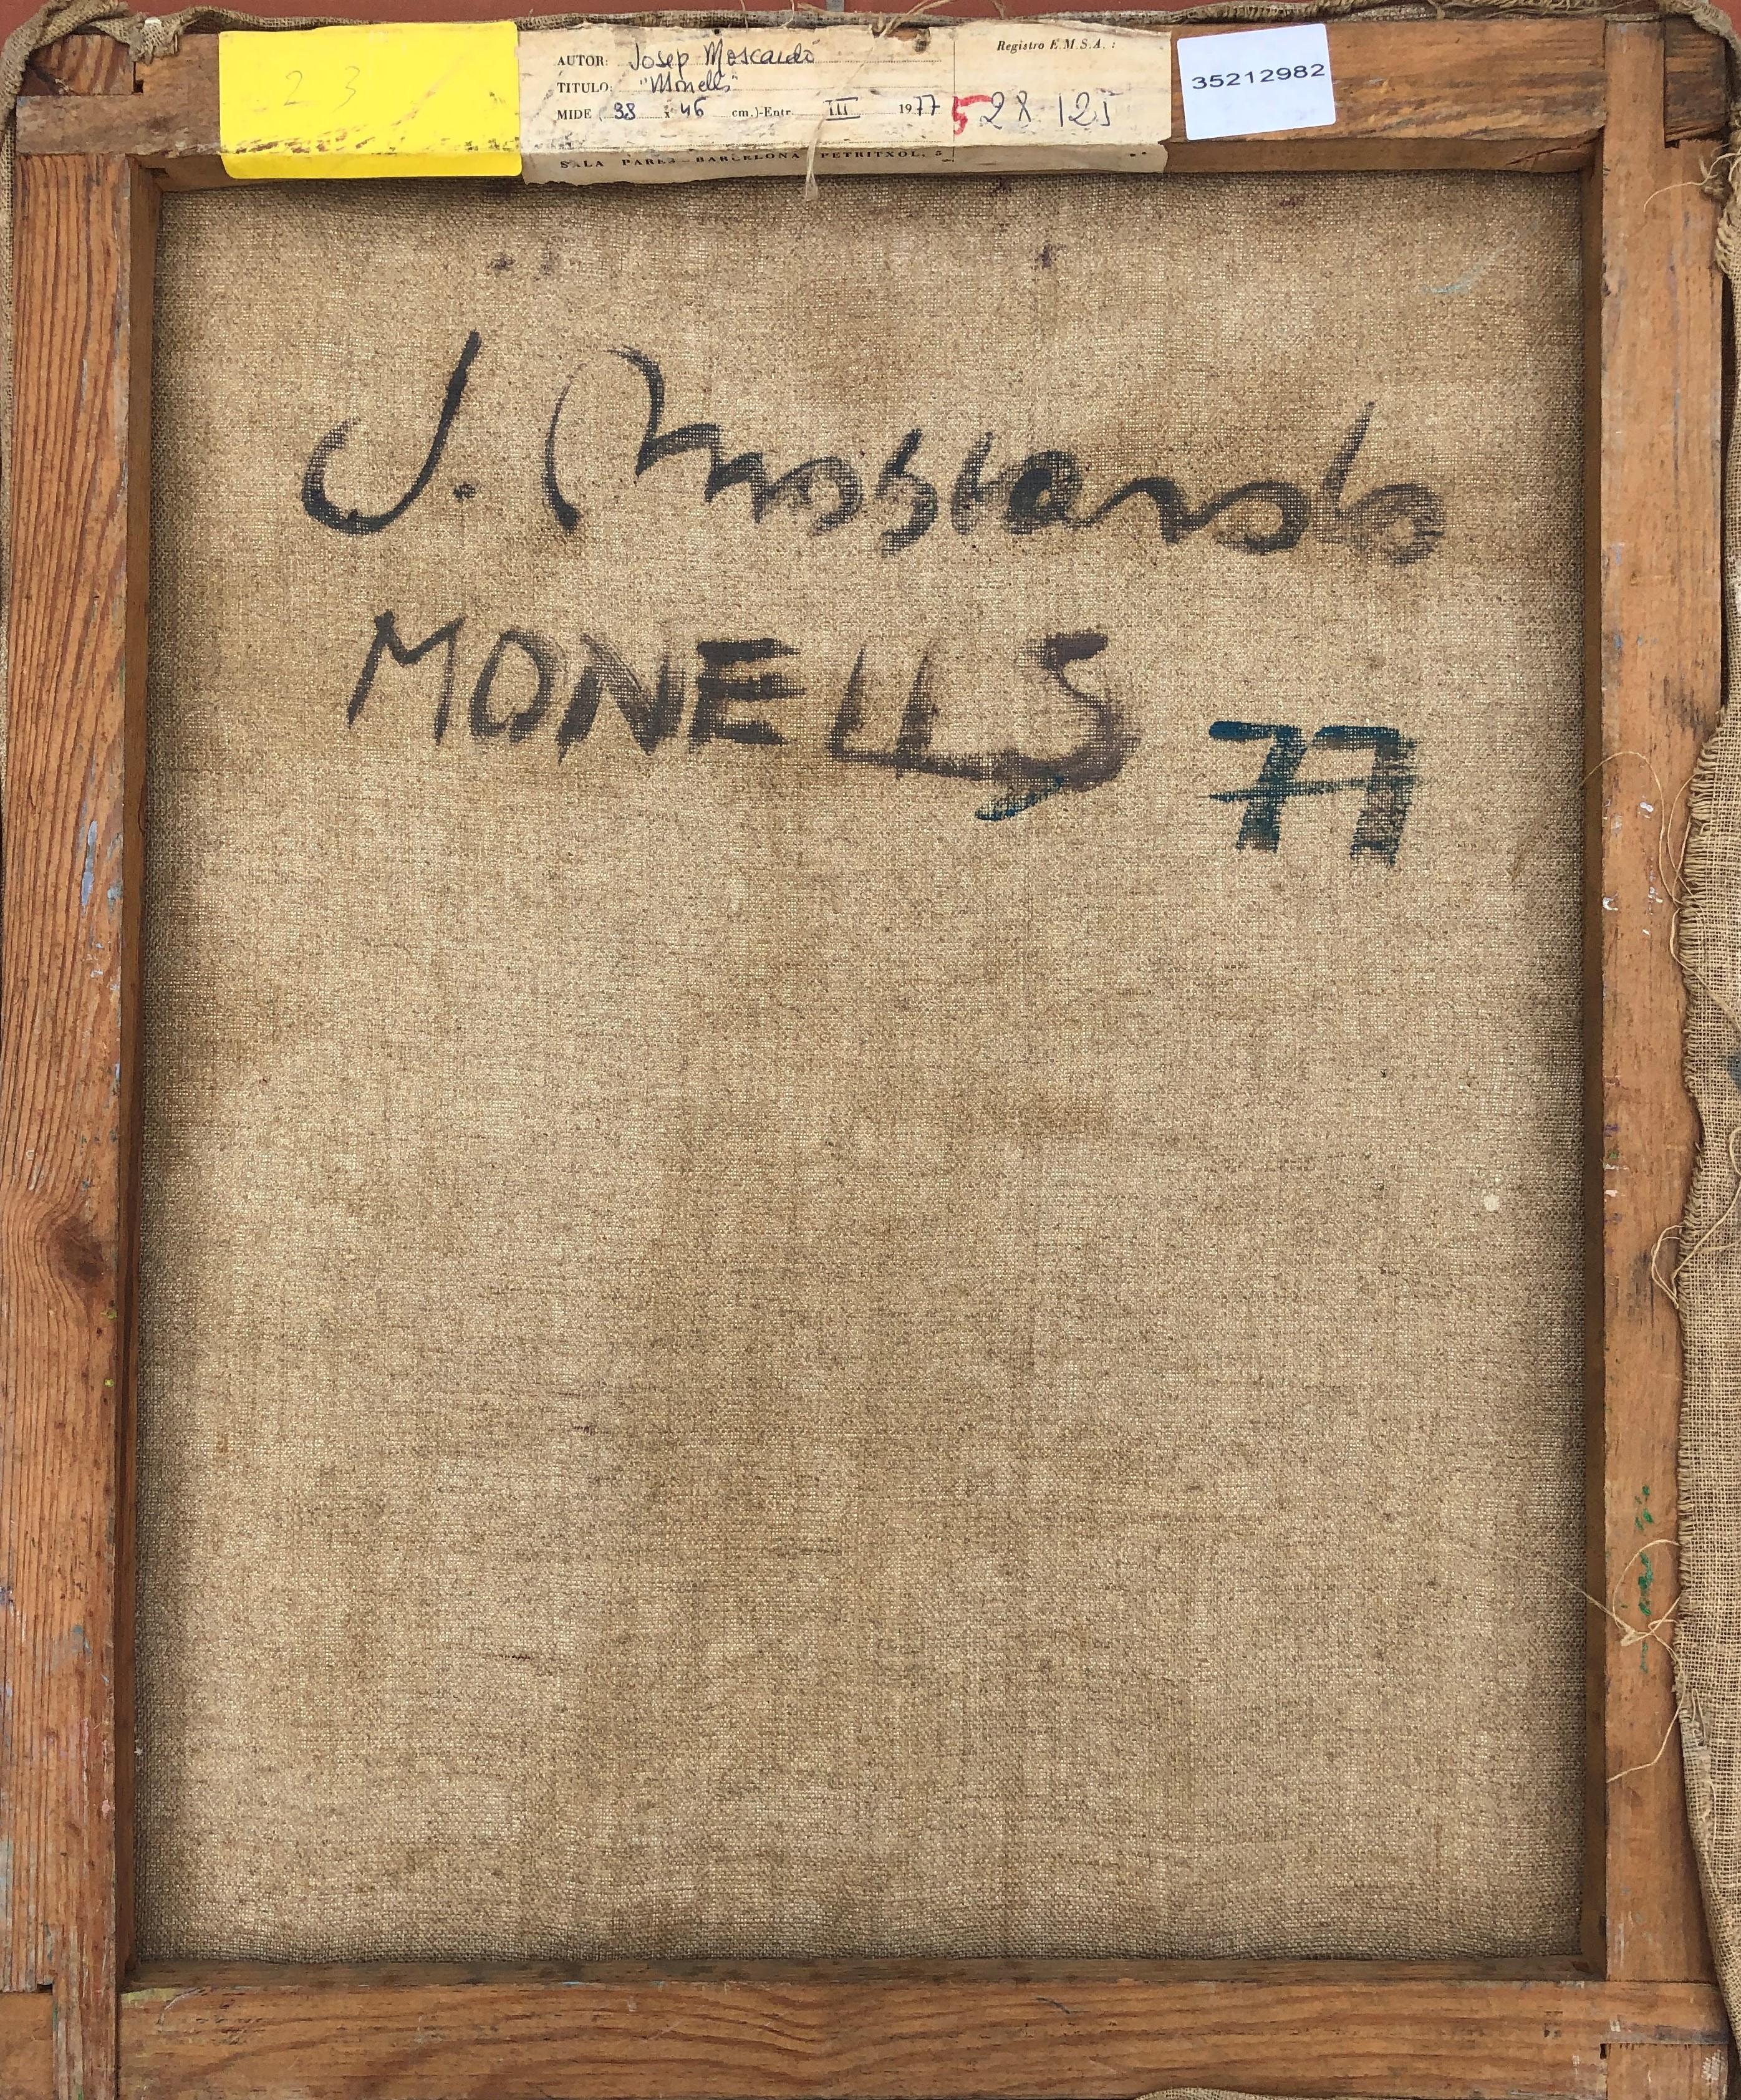 23
AUTOR: Josep Moscardó
TÍTULO: "Monells"
MIDE ( 38 x 46 cm.)-Entr. III 1977
SALA PARÉS - BARCELONA - PETRITXOL, 5
Registro E.M.S.A. :
5 28 125
35212982
J. Moscardo
MONELLS 77